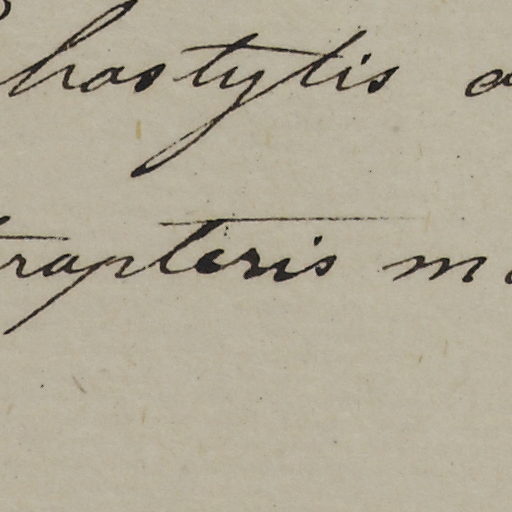 hastylis a
trapteris ma